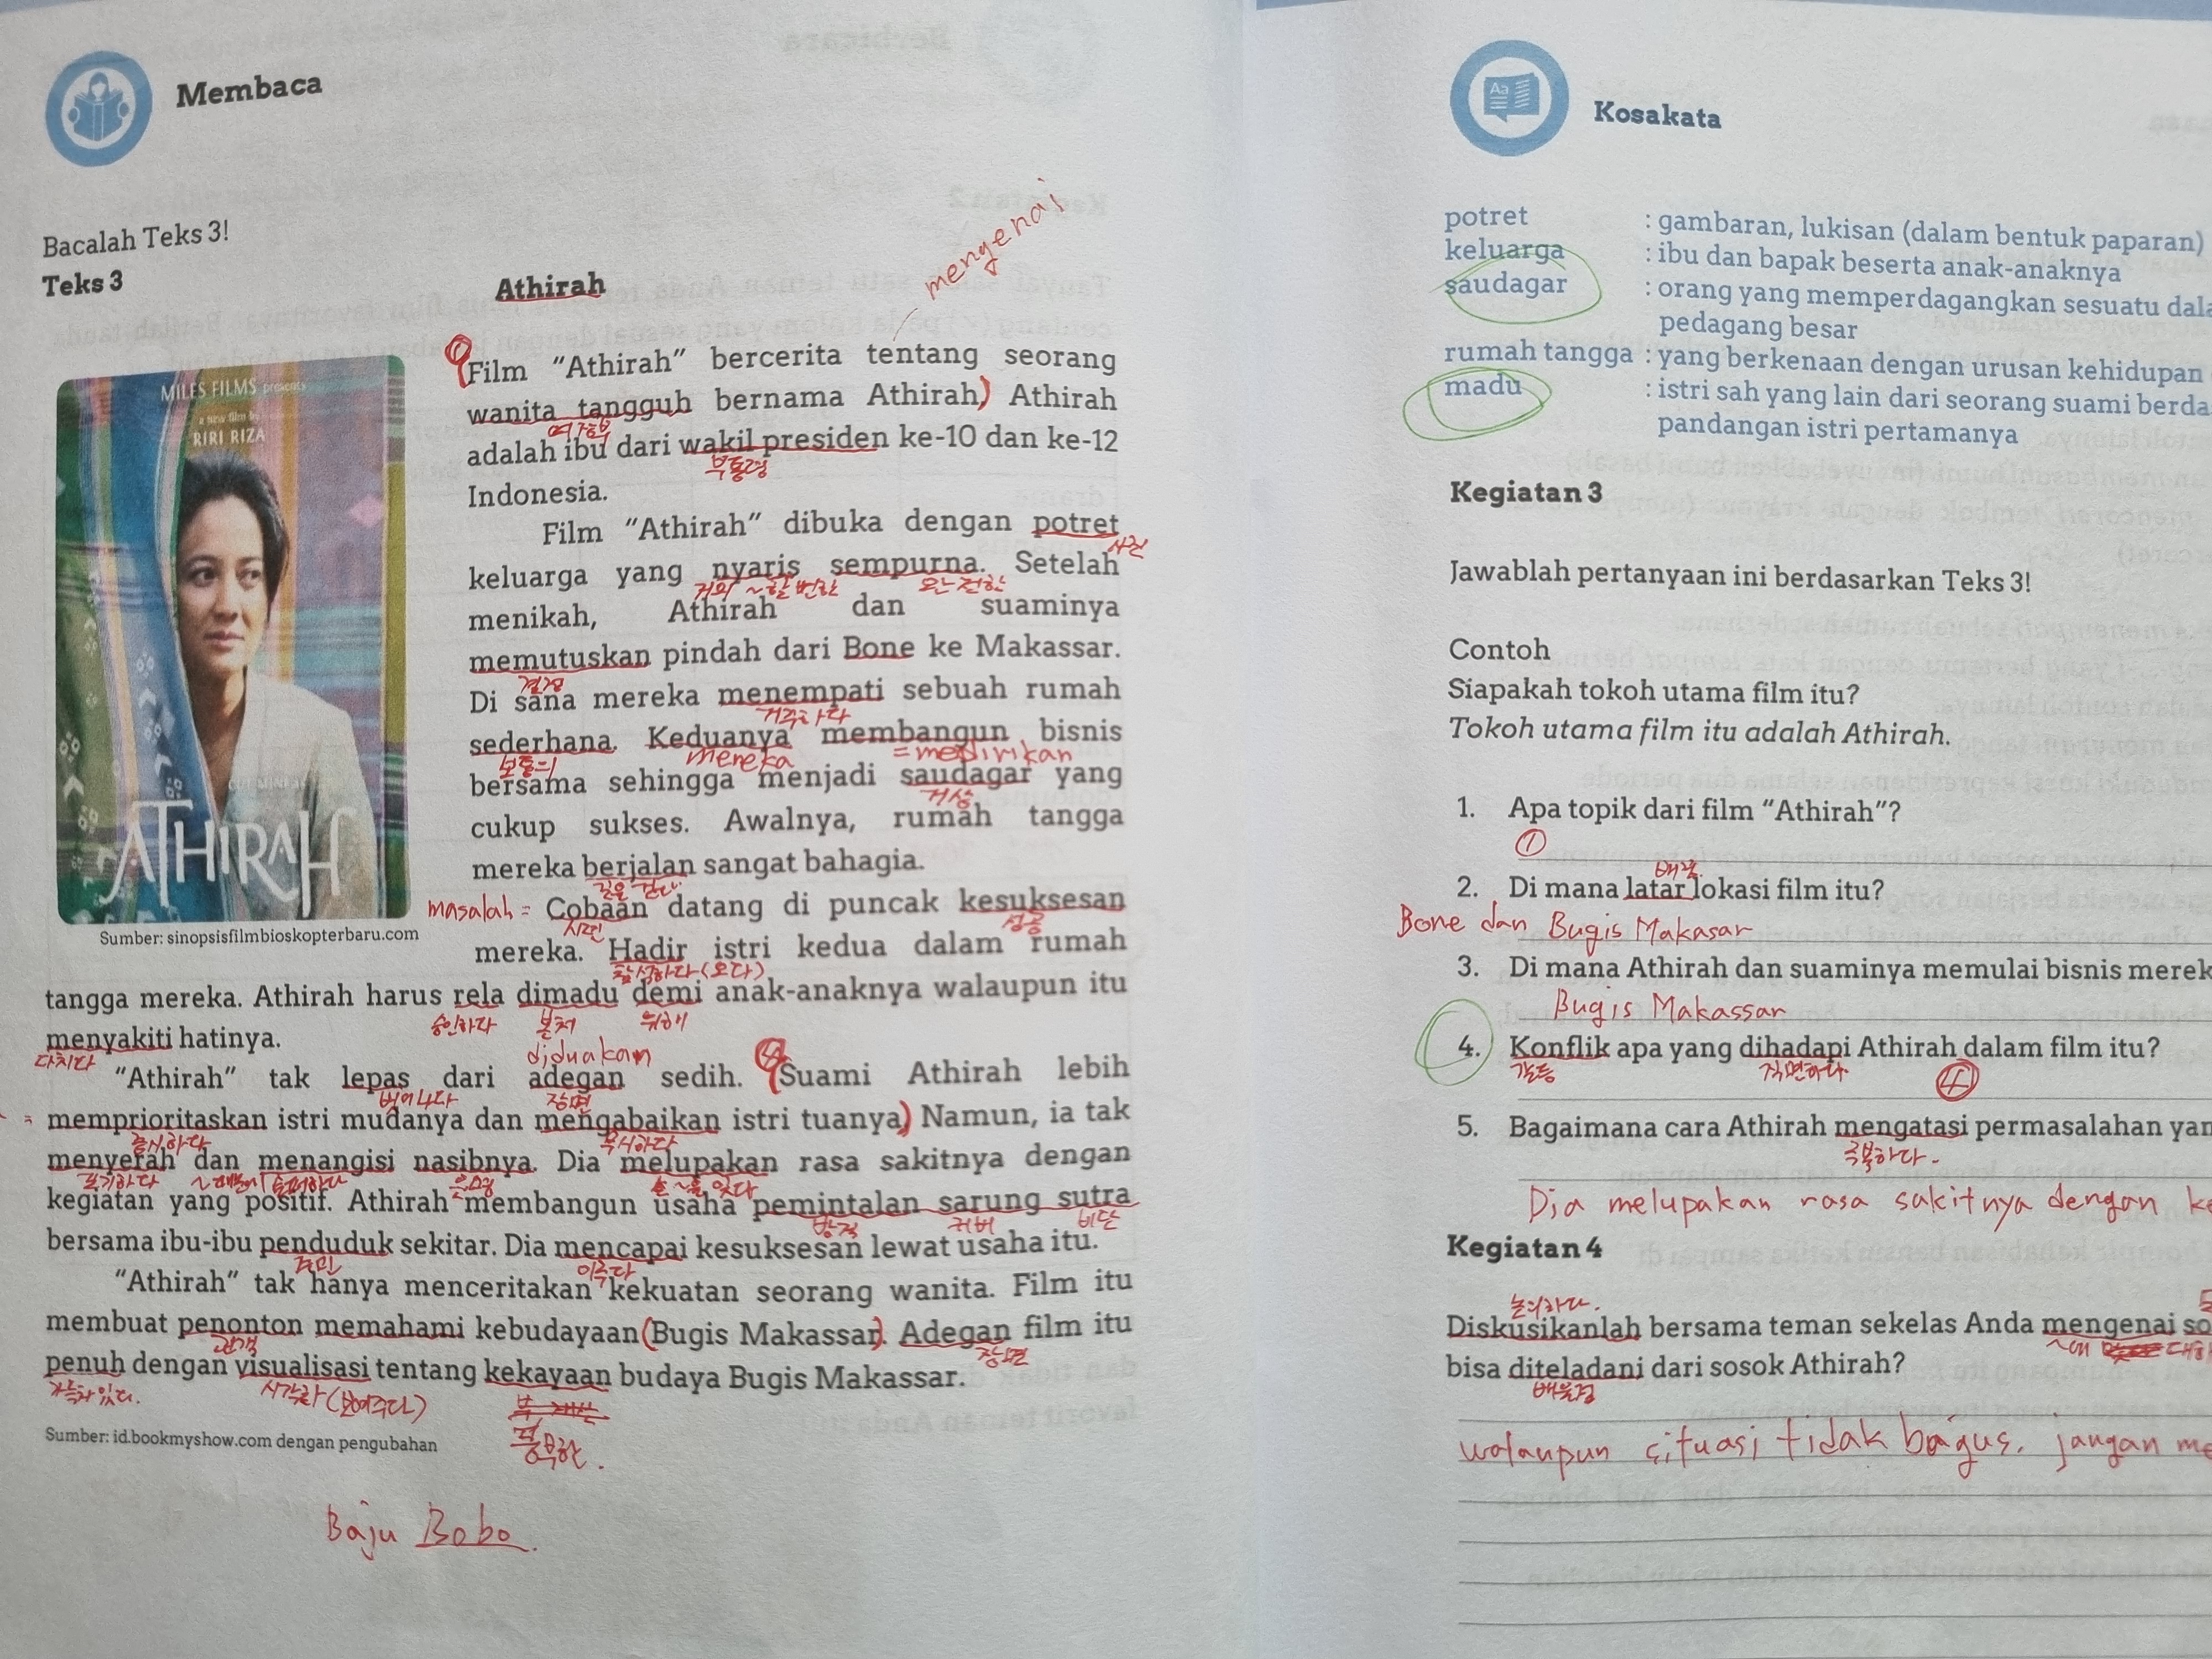 Membaca
Bacalah Teks 3!
Teks 3
Athirah
mengenai
MILES FILMS presents
a new film by
RIRI RIZA
ATHIRAH
Sumber: sinopsisfilmbioskopterbaru.com
①
Film “Athirah” bercerita tentang seorang
wanita tangguh bernama Athirah) Athirah
adalah ibu dari wakil presiden ke-10 dan ke-12
부통령
Indonesia.
Film “Athirah” dibuka dengan potret
사진
keluarga yang nyaris sempurna. Setelah
거의 ~할 뻔한 완전한
menikah, Athirah dan suaminya
memutuskan pindah dari Bone ke Makassar.
결정
Di sana mereka menempati sebuah rumah
거주하다
sederhana. Keduanya membangun bisnis
보통의 mereka = mendirikan
bersama sehingga menjadi saudagar yang
거상
cukup sukses. Awalnya, rumah tangga
mereka berjalan sangat bahagia.
길을 걷다
masalah = Cobaan datang di puncak kesuksesan
시련 성공
mereka. Hadir istri kedua dalam rumah
참석하다(오다)
tangga mereka. Athirah harus rela dimadu demi anak-anaknya walaupun itu
승인하다 본처 위해
menyakiti hatinya.
다치다 diduakan
④
“Athirah” tak lepas dari adegan sedih. (Suami Athirah lebih
벗어나다 장면
= memprioritaskan istri mudanya dan mengabaikan istri tuanya) Namun, ia tak
중시하다 무시하다
menyerah dan menangisi nasibnya. Dia melupakan rasa sakitnya dengan
포기하다 ~때문에 슬퍼하다 운명 ~을 잊다
kegiatan yang positif. Athirah membangun usaha pemintalan sarung sutra
방적 커버 비단
bersama ibu-ibu penduduk sekitar. Dia mencapai kesuksesan lewat usaha itu.
주민 이루다
“Athirah” tak hanya menceritakan kekuatan seorang wanita. Film itu
membuat penonton memahami kebudayaan (Bugis Makassar). Adegan film itu
관객 장면
penuh dengan visualisasi tentang kekayaan budaya Bugis Makassar.
가득차 있다. 시각화 (보여주다)
풍족한.
Sumber: id.bookmyshow.com dengan pengubahan
Baju Bobo.
Aa
Kosakata
potret : gambaran, lukisan (dalam bentuk paparan)
keluarga : ibu dan bapak beserta anak-anaknya
saudagar : orang yang memperdagangkan sesuatu dala
pedagang besar
rumah tangga : yang berkenaan dengan urusan kehidupan
madu : istri sah yang lain dari seorang suami berda
pandangan istri pertamanya
Kegiatan 3
Jawablah pertanyaan ini berdasarkan Teks 3!
Contoh
Siapakah tokoh utama film itu?
Tokoh utama film itu adalah Athirah.
1. Apa topik dari film “Athirah”?
①
배경
2. Di mana latar lokasi film itu?
Bone dan Bugis Makasar
3. Di mana Athirah dan suaminya memulai bisnis merek
Bugis Makassar
4. Konflik apa yang dihadapi Athirah dalam film itu?
갈등 직면하다 ④
5. Bagaimana cara Athirah mengatasi permasalahan yan
극복하다.
Dia melupakan rasa sakitnya dengan ke
Kegiatan 4
논의하다.
Diskusikanlah bersama teman sekelas Anda mengenai so
~에 대하
bisa diteladani dari sosok Athirah?
배울점
walaupun situasi tidak bagus. jangan me